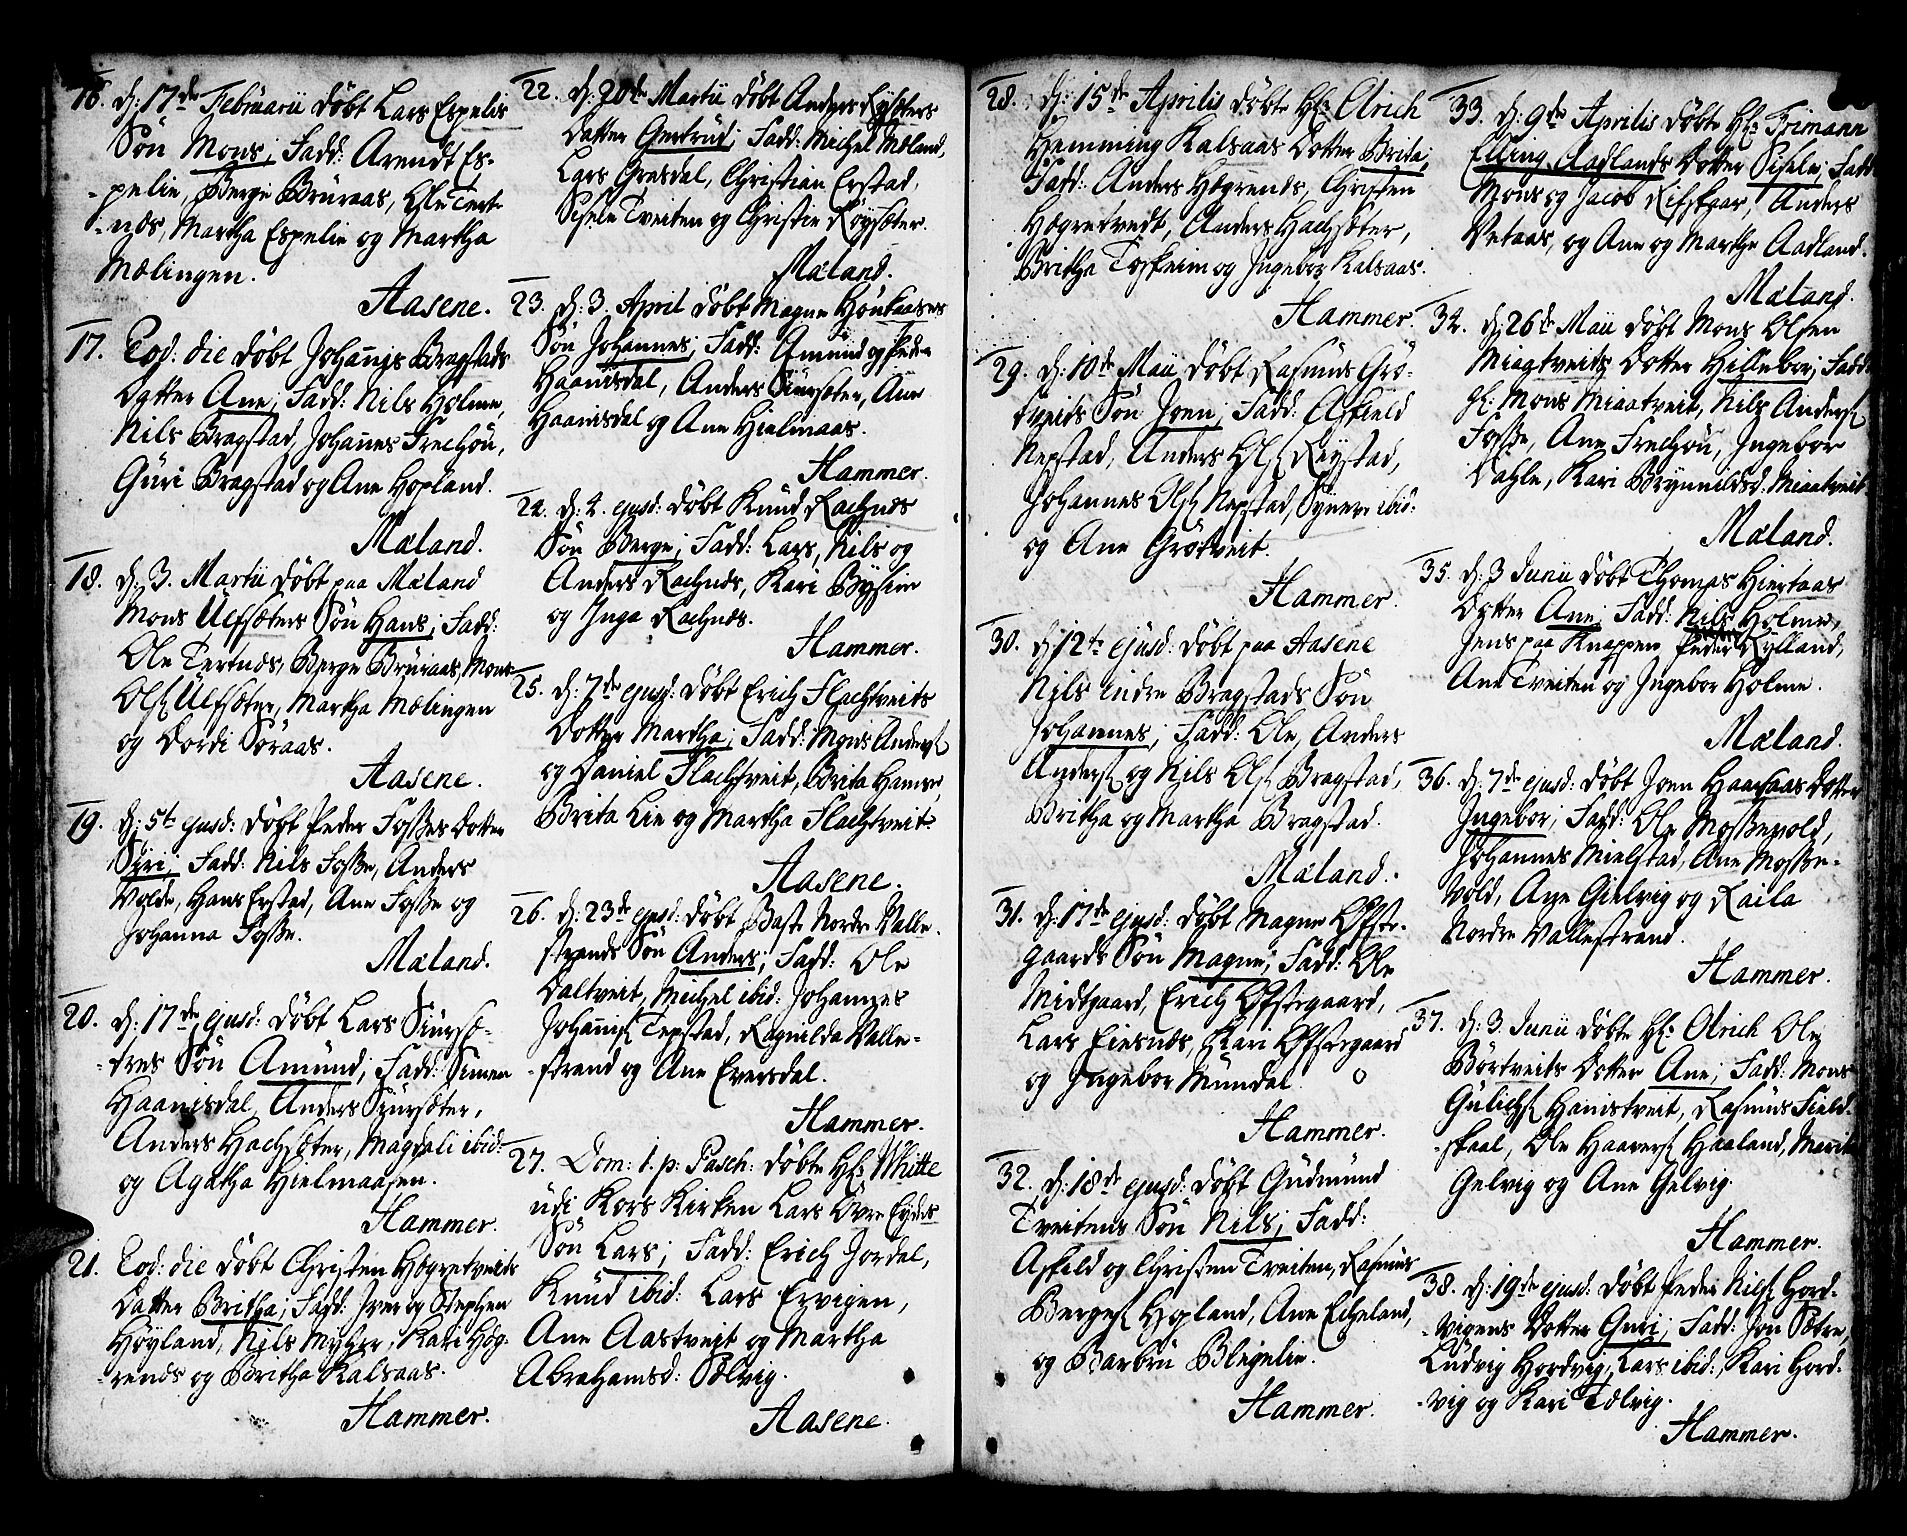 16. d: 17de Februarii döbt Lars Espelis
Sön Mons; Fadd: Arendt Es-
-pelie, Berge Bruraas, Ole Tert-
-næs, Martha Espelie og Martha
Mælingen.
Aasene.
17. Eod: die döbt Johannes Bragstads
Datter Ane; Fadd: Nils Holme,
Nils Bragstad, Johannes Frechou,
Guri Bragstad og Ane Hopland.
Mæland.
18. d: 3. Martii döbt paa Mæland
Mons Ulfsæters Sön Hans; Fadd:
Ole Tertnæs, Berge Bruraas, Mons
Ols: Ulfsæter, Martha Mælingen
og Dordi Söraas.
Aasene.
19. d: 5te ejusd: döbt Peder Fosses Datter
Siri; Fadd: Nils Fosse, Anders
Volde, Hans Erstad, Ane Fosse og
Johanna Fosse.
Mæland.
20. d: 17de ejusd: döbt Lars Siursæ-
-ters Sön Amund; Fadd: Simen
Haanisdal, Anders Siursæter,
Anders Hachsæter, Magdali ibid:
og Agatha Hielmaasen.
Hammer.
21. Eod: die döbt Christen Högretveits
Datter Britha; Fadd: Iver og Stephen
Höyland, Nils Myhre, Kari Hög-
-rends og Britha Kalsaas.
Hammer.
22. d: 20de Martii döbt Anders Röysæters
Datter Gertrud; Fadd: Michel Mæland,
Lars Gresdal, Christian Erstad,
Sisele Tveiten og Christie Röysæter.
Mæland.
23. d: 3. April döbt Magne Houkaases
Sön Johannes; Fadd: Amund og Peder
Haanisdal, Anders Siursæter, Ane
Haanisdal og Ane Hielmaas.
Hammer.
24. d: 4. ejusd: döbt Knud Rachnæs
Sön Berge; Fadd: Lars, Nils og
Anders Rachnæs, Kari Bysim
og Inga Rachnæs.
Hammer.
25. d: 7de ejusd: döbt Erich Flachtveits
Datter Martha; Fadd: Mons Anders:
og Daniel Flachtveit, Brita Hamre,
Brita Lie og Martha Flachtveit.
Aasene.
26. d: 23de ejusd: döbt Baste Nordre Valle-
strands Sön Anders; Fadd: Ole
Daltveit, Michel ibid: Johannes
Johannis: Tepstad, Ragnilda Valle-
-strand og Ane Eversdal.
Hammer.
27. Dom: 1. p: Pasch: döbte Hr: Whitte
udi Kors Kirken Lars Övre Eydes
Sön Lars; Fadd: Erich Jordal,
Knud ibid: Lars Ervigen,
Ane Aastveit og Martha
Abrahamsd: Sælvig.
Aasene.
28. d: 15de Aprilis döbte Hr: Olrich
Hemming Kalsaas Dotter Brita;
Fadd: Anders Högrends, Christen
Högretvedt, Anders Hachsæter,
Britha Toskeim og Ingebor Kalsaas.
Hammer.
29. d: 10de Maii döbt Rasmus Grö-
tveits Sön Joen; Fadd: Askield
Nepstad, Anders Ols: Röystad,
Johannes Ols: Nepstad, Syneve ibid:
og Ane Grötveit.
Hammer.
30. d: 12te ejusd: döbt paa Aasene
Nils indre Bragstads Sön
Johannes; Fadd: Ole, Anders
Anders: og Nils Ols: Bragstad,
Britha og Martha Bragstad.
Mæland.
31. d: 17de ejusd: döbt Magne Öfster-
gaards Sön Magne; Fadd: Ole
Midtgaard, Erich Öfstergaard,
Lars Eiesnæs, Kari Öfstergaard
og Ingebor Mundal.
Hammer.
32. d: 18de ejusd: döbt Gudmund
Tveitens Sön Nils; Fadd:
Askeld og Christen Tveiten, Rasmus
Berges: Hopland, Ane Echeland,
og Barbru Blegelie.
Hammer.
33. d: 9de Aprilis döbte Hr: Frimann
Elling Aadlands Dotter Sisele; Fadd:
Mons og Jacob Rifskaar, Anders
Vetaas, og Ane og Marthe Aadland.
Mæland.
34. d: 26de Maii döbt Mons Olsen
Miaatveits Dotter Hillebor; Fadd:
gl: Mons Miaatveit, Nils Anders:
Fosse, Ane Frechou, Ingebor
Dahle, Kari Brynnildsd: Miaatveit.
Mæland.
35. d: 3 Junii döbt Thomas Hiertaas
Dotter Ane; Fadd: Nils Holme,
Jens paa Knappen, Peder Rylland,
Ane Tveiten og Ingebor Holme.
Mæland.
36. d: 7de ejusd: döbt Joen Haachaas Dotter
Ingebor; Fadd: Ole Mossevold,
Johannes Mielstad, Ane Mosse-
vold, Ane Gielvig og Raila
Nordre Vallestrand.
Hammer.
37. d: 3. Junii döbte Hr: Olrich Ole
Börtveits Dotter Ane; Fadd: Mons
Gulichs: Hanistveit, Rasmus Field-
-skaal, Ole Haavers: Haaland, Marita
Gelvig og Ane Gelvig.
Hammer.
38. d: 19de ejusd: döbt Peder Nils: Hord-
-vigens Dotter Guri; Fadd: Jon Sætre,
Ludvig Hordvig, Lars ibid:, Kari Hord-
-vig og Kari Tælvig.
Hammer.